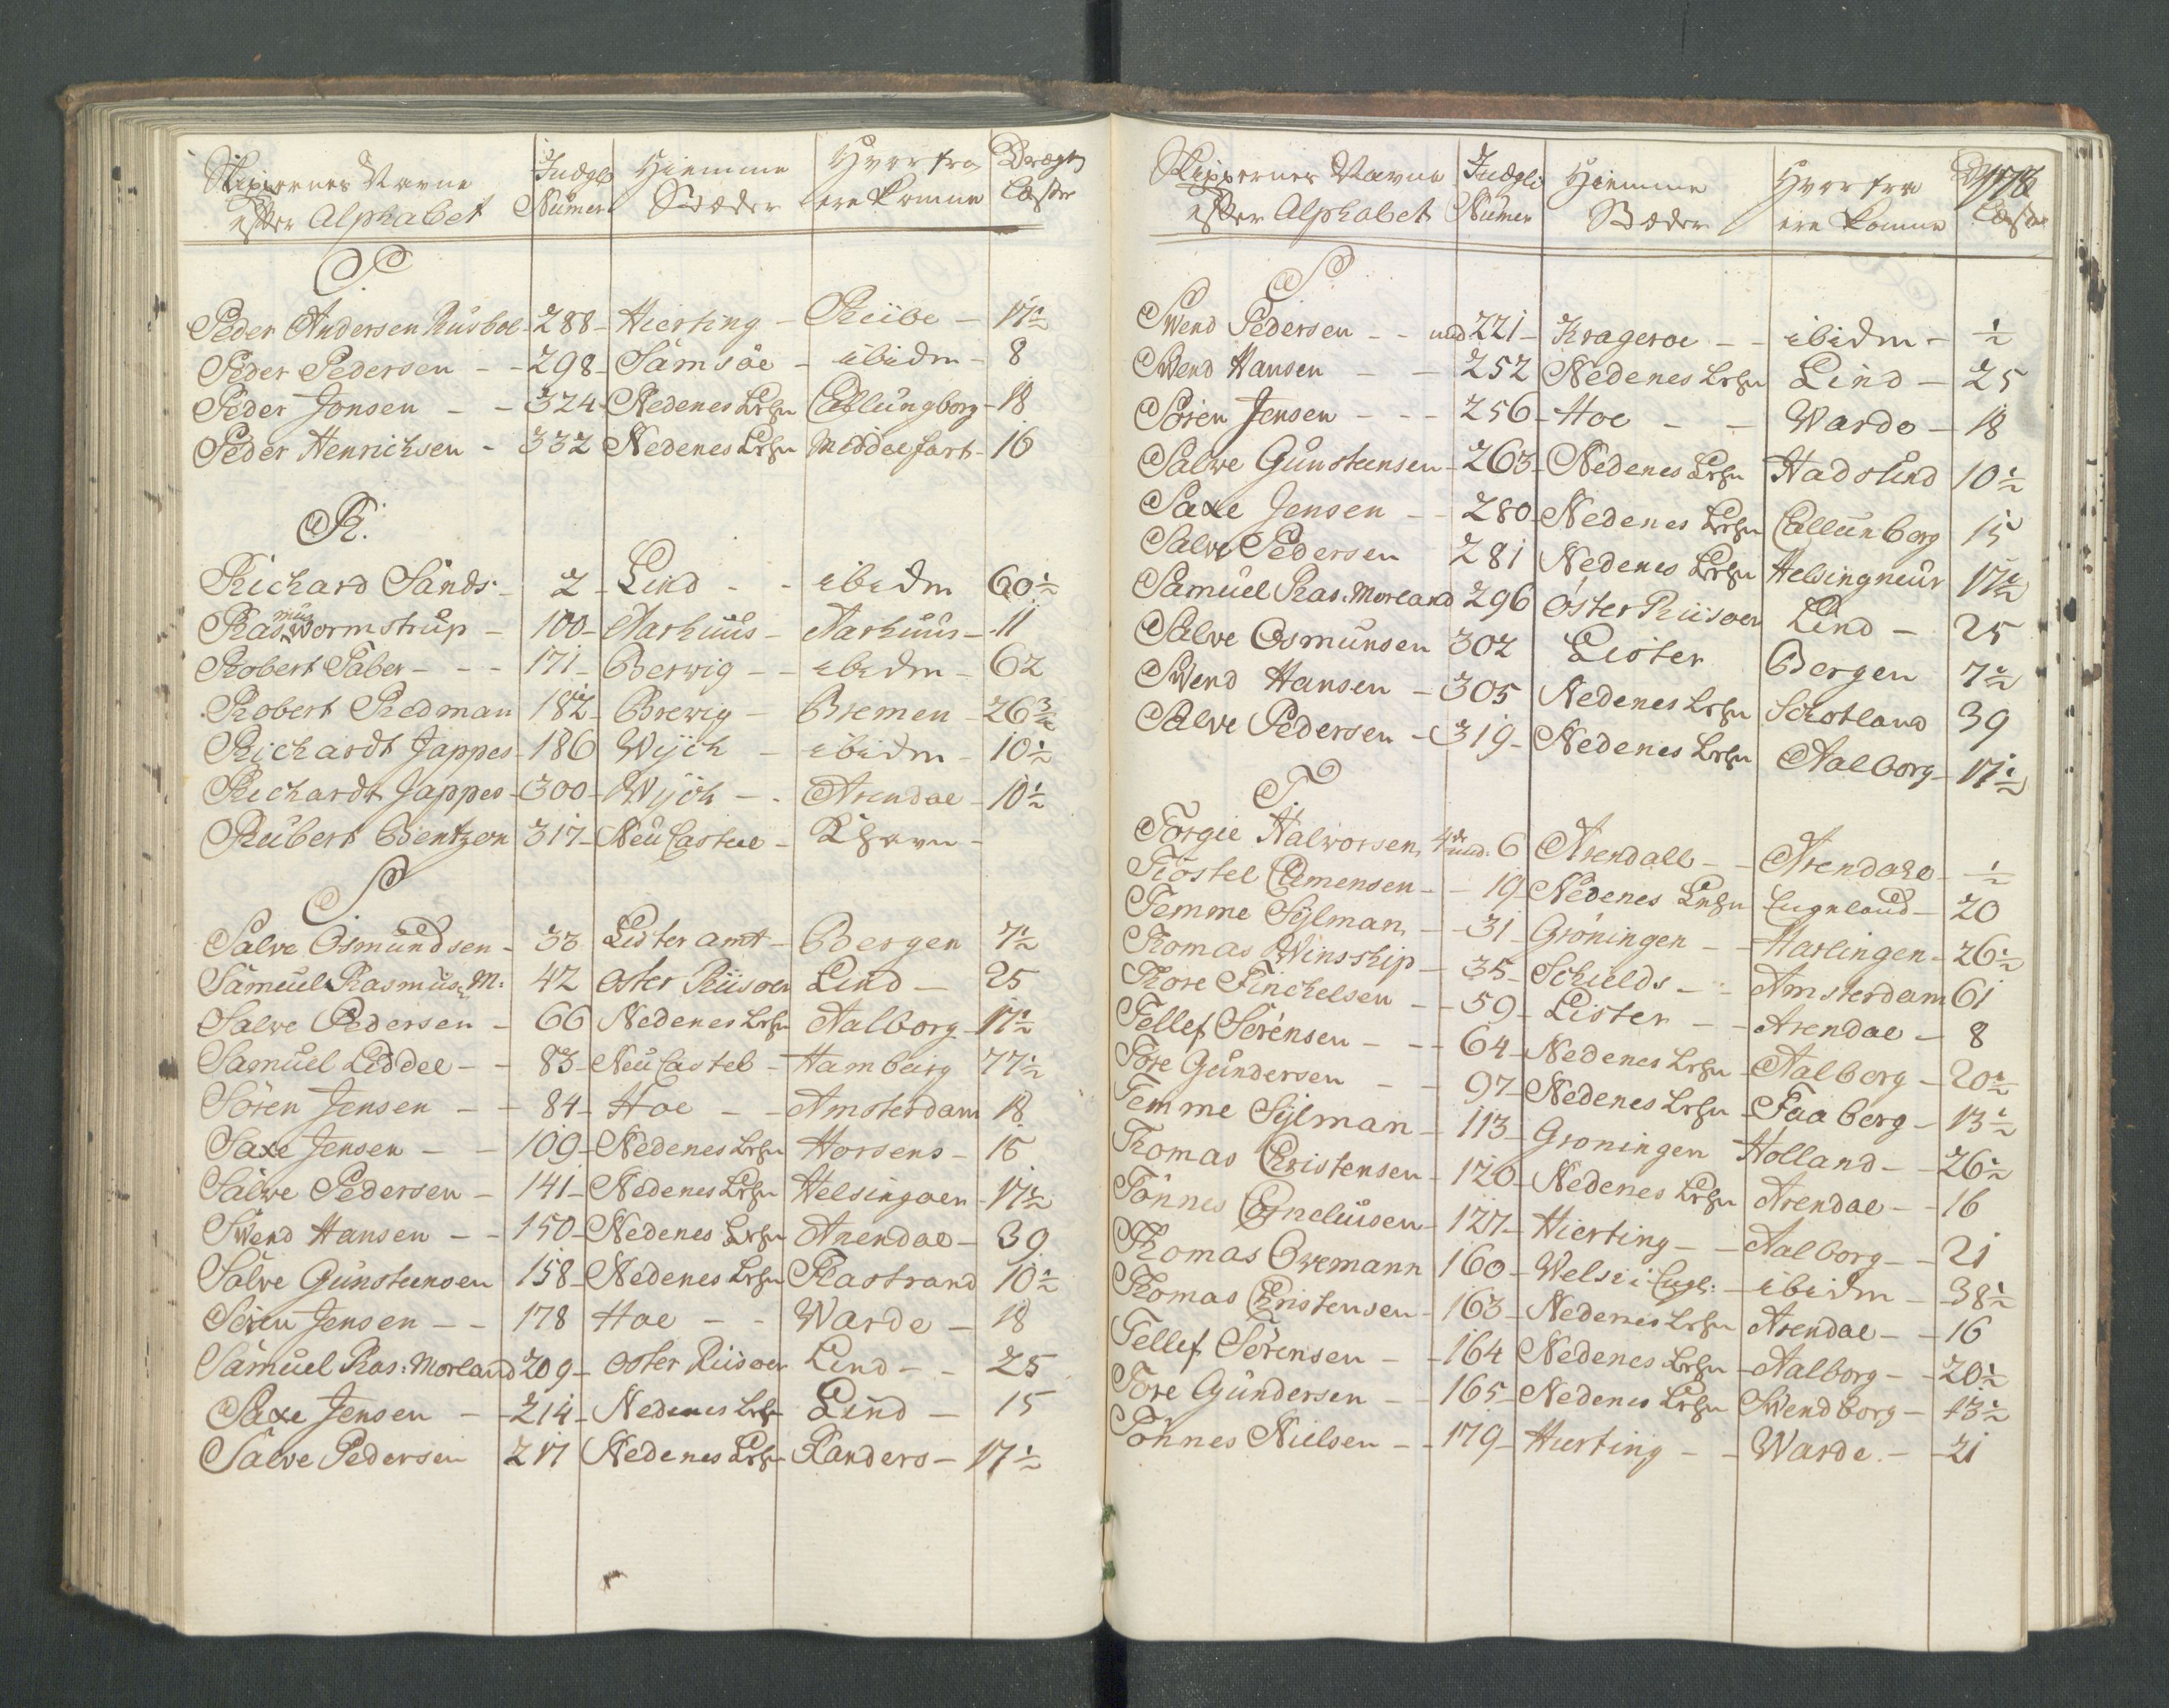 Skippernes Navne Indgl: Hiemme Hvor fra Drægt
efter Alphabet Numer Stæder ere komne Læster
P
Peder Andersen Rusboe - 288 - Hierting - Riibe - 17½
Peder Pedersen - - 298 - Samsöe - ibidm - 8
Peder Jonsen - - 324 - Nedenes Lehn Callungborg - 18
Peder Henrichsen - 332 Nedenes Lehn Middelfart - 16
R.
Richard Sands - 2 - Lind - - ibidm 60½
Rasmus Wormstrup - 100 - Aarhuus - Aarhuus - 11
Robert Taber - - - 171 - Berwig - - ibidm - 62
Robert Redman 182 - Brewig - Bremen - 26¾
Richardt Jappes - 186 Wijch - ibidm - 10½
Richardt Jappes - 300 - Wijch - - Arendae - 10½
Rubert Bentzen 317 - Neu Casteel - Khavn -
S
Salve Osmundsen - 33 Lister amt - Bergen 7½
Samuel Rasmus: M: 42 Oster Riisoer Lind - 25
Salve Pedersen - 66 Nedenes Lehn Aalborg - 17½
Samuel Liddel - - 83 - Neu Castel - Hamburg 77½
Sören Jensen - - 84 - Hoe - - Amsterdam 18
Saxe Jensen - - 109 - Nedenes Lehn Horsens - 15
Salve Pedersen - 141 - Nedenes Lehn Helsingoer - 17½
Swend Hansen - - 150 - Nedenes Lehn Arendae - 39
Salve Gunsteensen 158 - Nedenes Lehn Flastrand 10½
Sören Jensen - - 178 Hoe - - Warde - 18
Samuel Ras: Morland 209 - Oster Riisoer Lind - - 25
Saxe Jensen - - 214 - Nedenes Lehn Lind - 15
Salve Pedersen 217 Nedenes Lehn Randers - 17½
Skippernes Navne Indgl: Hiemme Hvor fra Drægt
efter Alphabet Numer Stæder ere komne Læster
S
Swend Pedersen - - und 221 - Krageroe - - ibidm - ½
Swend Hansen - - 252 Nedenes Lehn Lind - 25
Sören Jensen - - - 256 - Hoe - - Warde - 18
Salve Gunsteensen - 263 - Nedenes Lehn Hadslund 10½
Saxe Jensen - - 280 - Nedenes Lehn Callunborg 15
Salve Pedersen 281 Nedenes Lehn Helsingneur 17½
Samuel Ras: Morland 296 Öster Riisoer Lind - 25
Salve Osmunsen 302 Lister Bergen 7½
Swend Hansen - 305 Nedenes Lehn Schotland 39
Salve Pedersen - 319 - Nedenes Lehn Aalborg - 17½
T
Torgie Halworsen, 4de und. 6 Arendall - - Arendahl - ½
Tiöstel Clemensen - - 19 Nedenes Lehn Engeland - 20
Temme Sÿlman, - - 31 - Gröningen - - Harlingen - 26½
Thomas Winsship - 35 - Schields - - Amsterdam 61
Thore Finchelsen - - 59 - Lister - - Arendae - 8
Tellef Sörensen - - - 64 - Nedenes Lehn - Aalborg - 20½
Tore Gundersen - - 97 - Nedenes Lehn - Faaborg - 13½
Temme Sÿlman - 113 - Groningen Holland - - 26½
Thomas Christensen - 120 - Nedenes Lehn Arendae - - 16
Tönnes Cornelüsen - 127 - Hierting - - Aalborg - - 21
Thomas Owemann 160 - Wels i Engl: - ibidm - - 38½
Thomas Christensen - 163 - Nedenes Lehn Arendae - - 16
Tellef Sörensen - - 164 Nedenes Lehn - Aalborg - - 20½
Tore Gundersen - - 165 - Nedenes Lehn Swendborg - 13½
Tönnes Nielsen - - 179 - Hierting - - Warde. - - 21